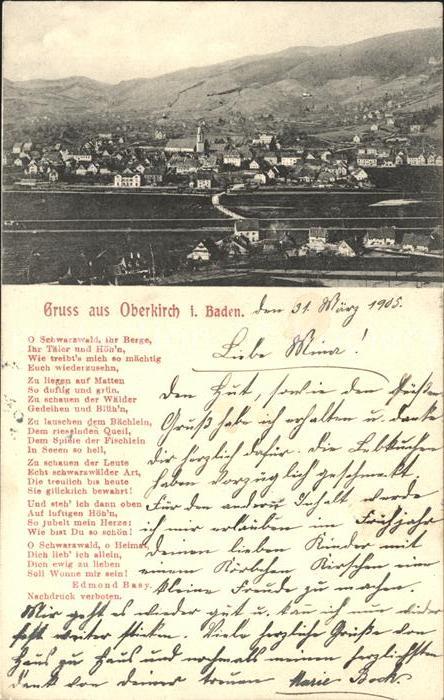 Gruss aus Oberkirch i. Baden.
den 31. März 1905.
Liebe Mina!
O Schwarzwald, ihr Berge,
Ihr Täler und Höh'n,
Wie treibt's mich so mächtig
Euch wiederzusehn,
Zu liegen auf Matten
So duftig und grün.
Zu schauen der Wälder
Gedeihen und Blüh'n,
Zu lauschen dem Bächlein,
Dem rieselnden Quell,
Dem Spiele der Fischlein
In Seeen so hell,
Zu schauen der Leute
Echt schwarzwälder Art,
Die treulich bis heute
Sie glücklich bewahrt!
Und steh' ich dann oben
Auf luftigen Höh'n,
So jubelt mein Herze:
Wie bist Du so schön!
O Schwarzwald, o Heimat,
Dich lieb' ich allein,
Dich ewig zu lieben
Soll Wonne mir sein!
Edmond Basy.
Nachdruck verboten.
Den Hut, sowie den
Gruß habe ich erhalten u. danke
dir herzlich dafür. Die Lebkuchen
haben vorzüglich geschmeckt
Für den andern Inhalt werde
ich mir erlauben im Frühjahr
deinen lieben Kinder mit
einem Körbchen Kirschen eine
kleine Freude zu machen.
Mir geht es wieder gut u. kan ich nun wider
fest weiter Viele herzliche Grüße von
Haus zu Haus und nochmals meinen herzlichsten
Dank von deiner treuen Marie Bock